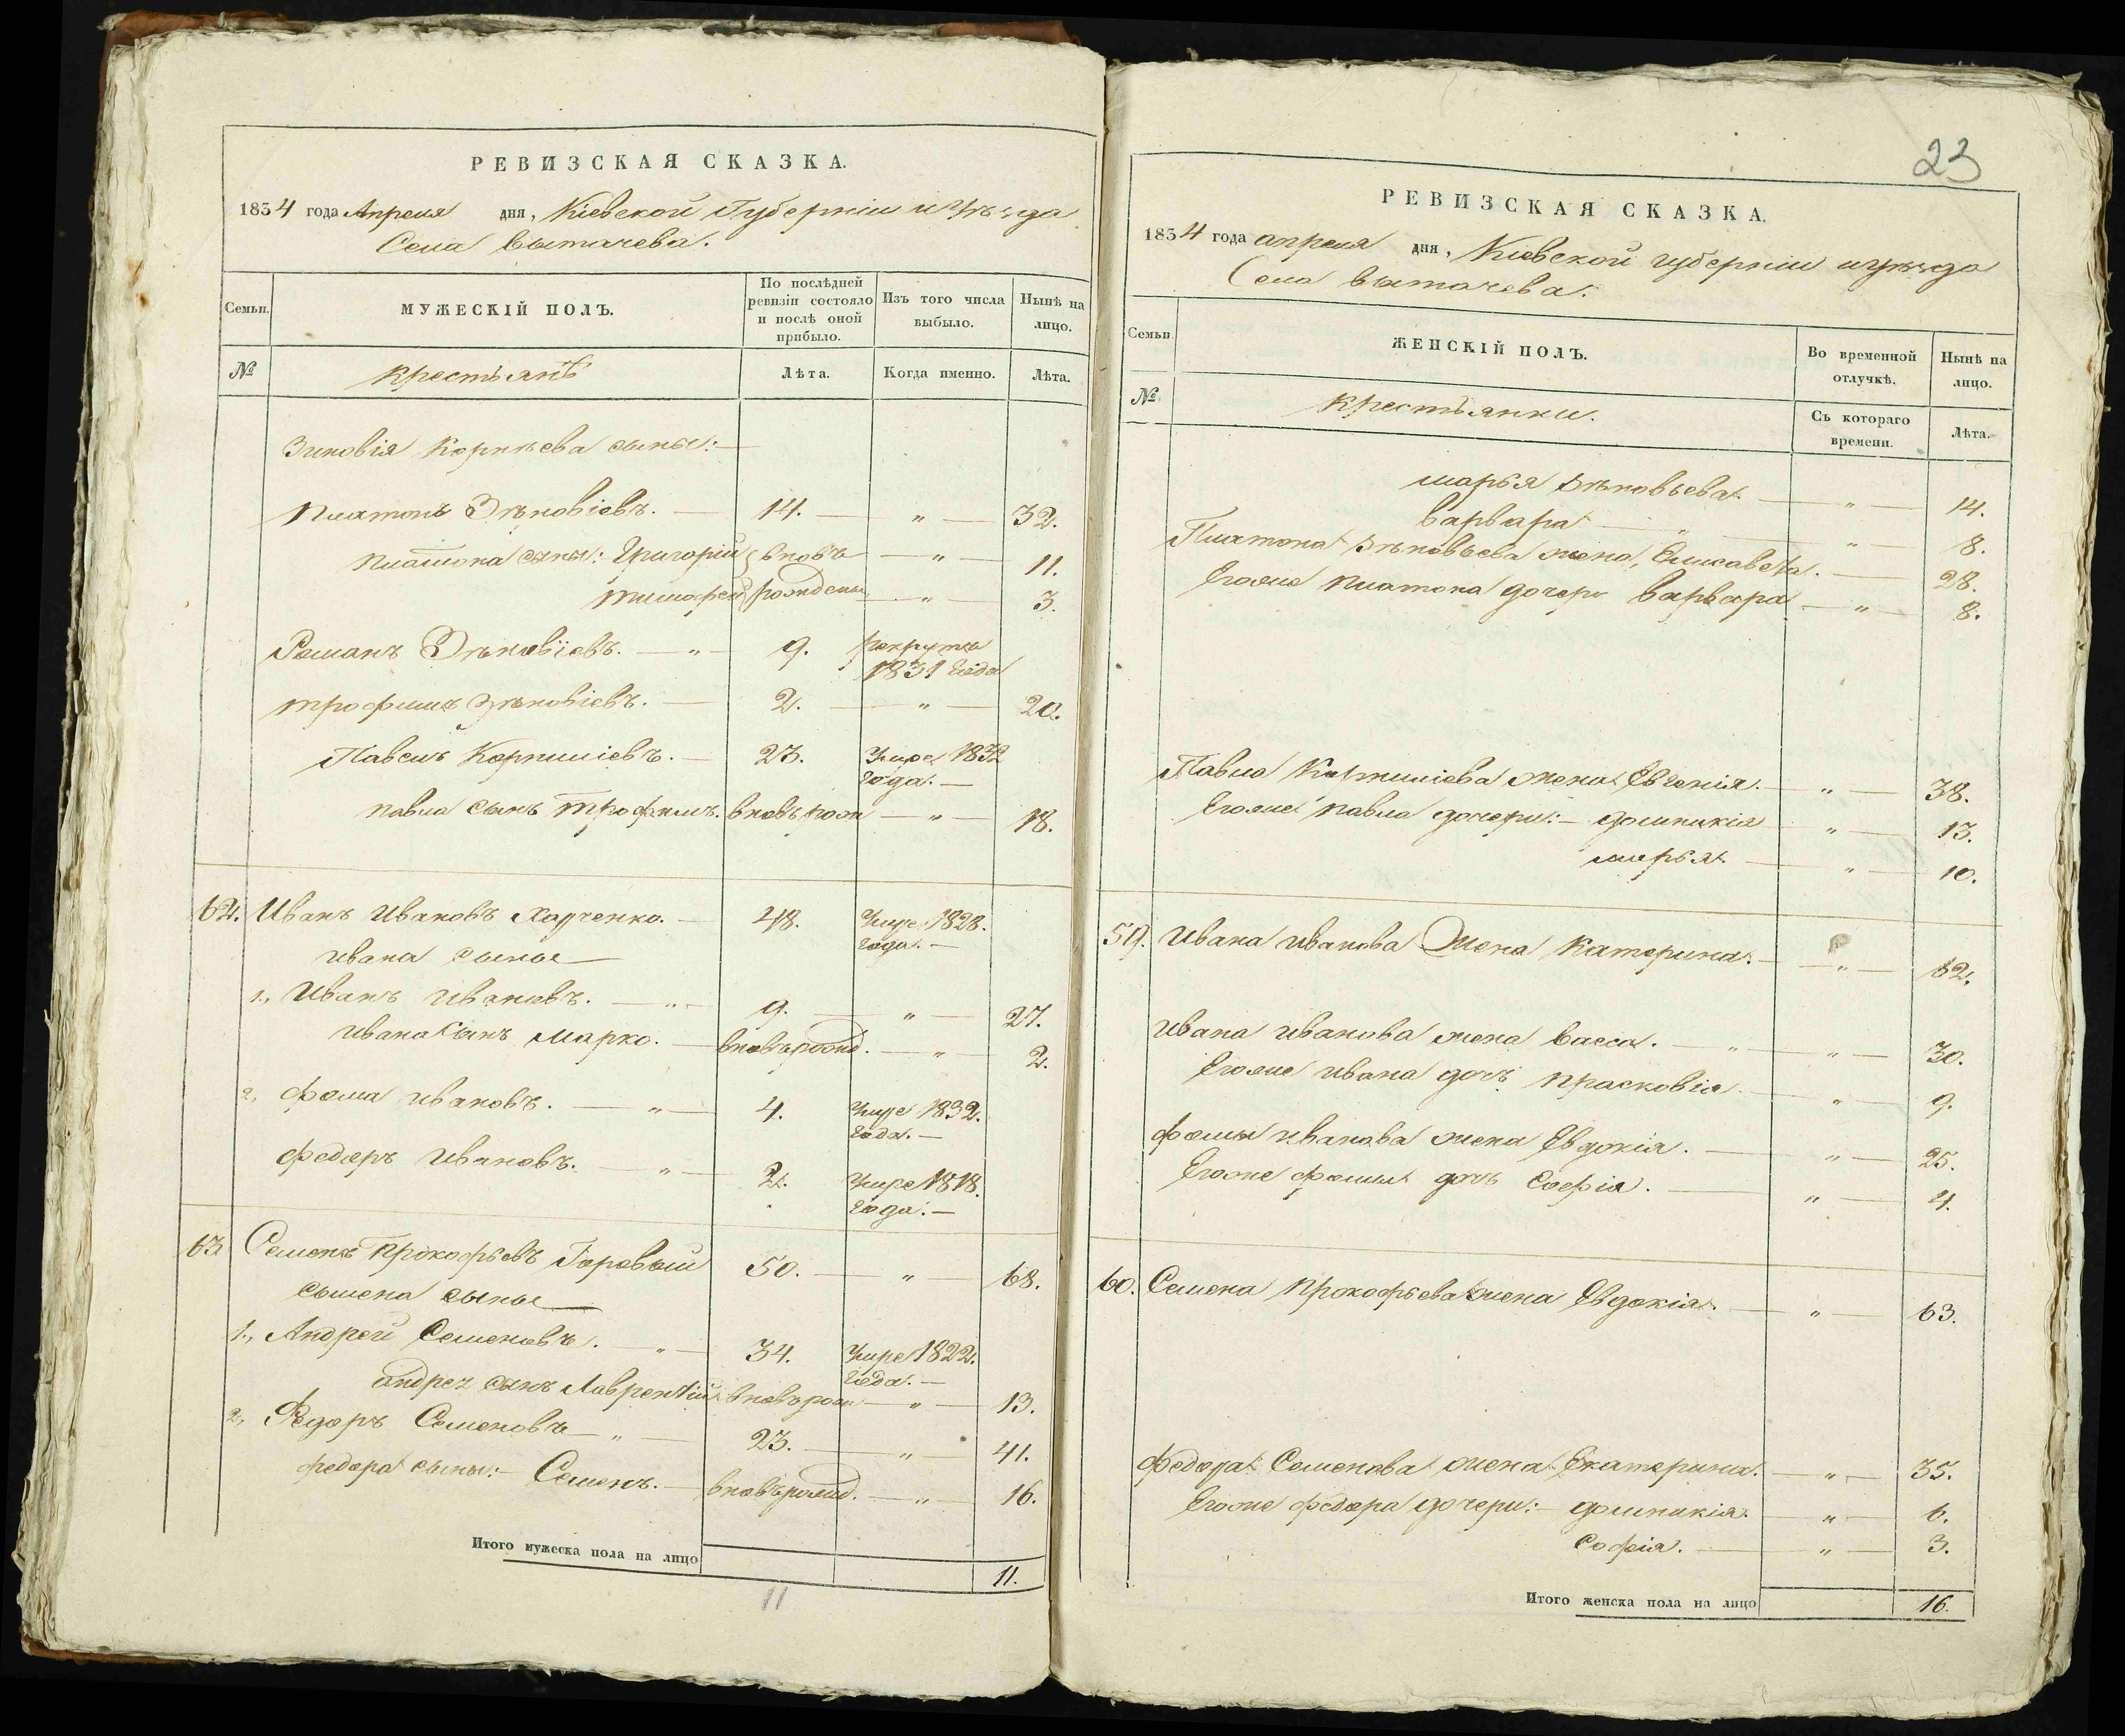 РЕВИЗСКАЯ СКАЗКА.
1834 года Апреля дня, Кіевской Губерніи и уѣзда
Села Вытачева.
Семьи.
МУЖЕСКІЙ ПОЛЪ.
По послѣдней ревизіи состояло и послѣ оной прибыло.
Изъ того числа выбыло.
Нынѣ на лицо.
№
Крестьянъ
Лѣта.
Когда именно.
Лѣта.
Зиновія Корнѣева сыны:
Платонъ Зѣновіевъ. — 14. — " — 32.
Платона сыны: Григорій вновь — " — 11.
Тимофей рождены — " — 3.
Романъ Зѣновіевъ. — " — 9. рекрутъ
1831 года
Трофимъ Зѣновіевъ. — 2. — " — 20.
Павелъ Корниліевъ. — 23. Умре 1832
года. —
Павла сынъ Трофимъ. вновь рож — " — 18.
62. Иванъ Ивановъ Харченко. — 48. Умре 1828.
года. —
Ивана сыны —
1., Иванъ Ивановъ. — " — 9. — " — 27.
Ивана сынъ Марко. — вновь рожд. — " — 2.
2, Фома Ивановъ. — " — 4. Умре 1832.
года. —
Федоръ Ивановъ. — " — 2. Умре 1818.
года. —
63 Семенъ Прокофьевъ Горовый 50. — " — 68.
Сымена сыны —
1., Андрей Семеновъ. — " — 34. Умре 1822.
года. —
Андрея сынъ Лаврентій вновь рож — " — 13.
2, Федоръ Семеновъ — " — 23. — " — 41.
Федора сыны: — Семенъ. — вновь рожд. — " — 16.
Итого мужеска пола на лицо 11.
11
23
РЕВИЗСКАЯ СКАЗКА.
1834 года апреля дня, Кіевской губерніи и уѣзда
Села Вытачева.
Семьи
ЖЕНСКІЙ ПОЛЪ.
Во временной отлучкѣ.
Нынѣ на лицо.
№
Крестьянки.
Съ котораго времени.
Лѣта.
Марья Зѣновьева — " — 14.
Варвара — " — " — 8.
Платона Зѣновьева жена, Елисавета. — 28.
Егоже Платона дочери Варвара — " — 8.
Павла Корниліева жена Евгенія. — " — 38.
Егоже Павла дочери: — Домникія — " — 13.
Марья — " — 10.
59. Ивана Иванова Жена Катерина. — " — 62.
Ивана Иванова жена Васса. — " — " — 30.
Егоже Ивана дочь Прасковія — " — 9.
Фомы Иванова жена Евдокія. — " — 25.
Егоже Фомы дочь Софія. — " — 4.
60. Семена Прокофьева жена Евдокія. — " — 63.
Федора Семенова жена Екатерина. — " — 35.
Егоже Федора дочери: — Домникія. — " — 6.
Софія. — " — 3.
Итого женска пола на лицо 16.